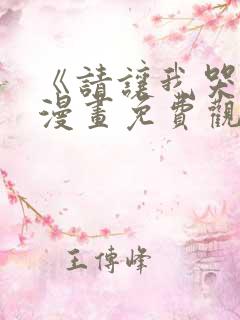 《請讓我哭
漫畫免費觀
王傳峰